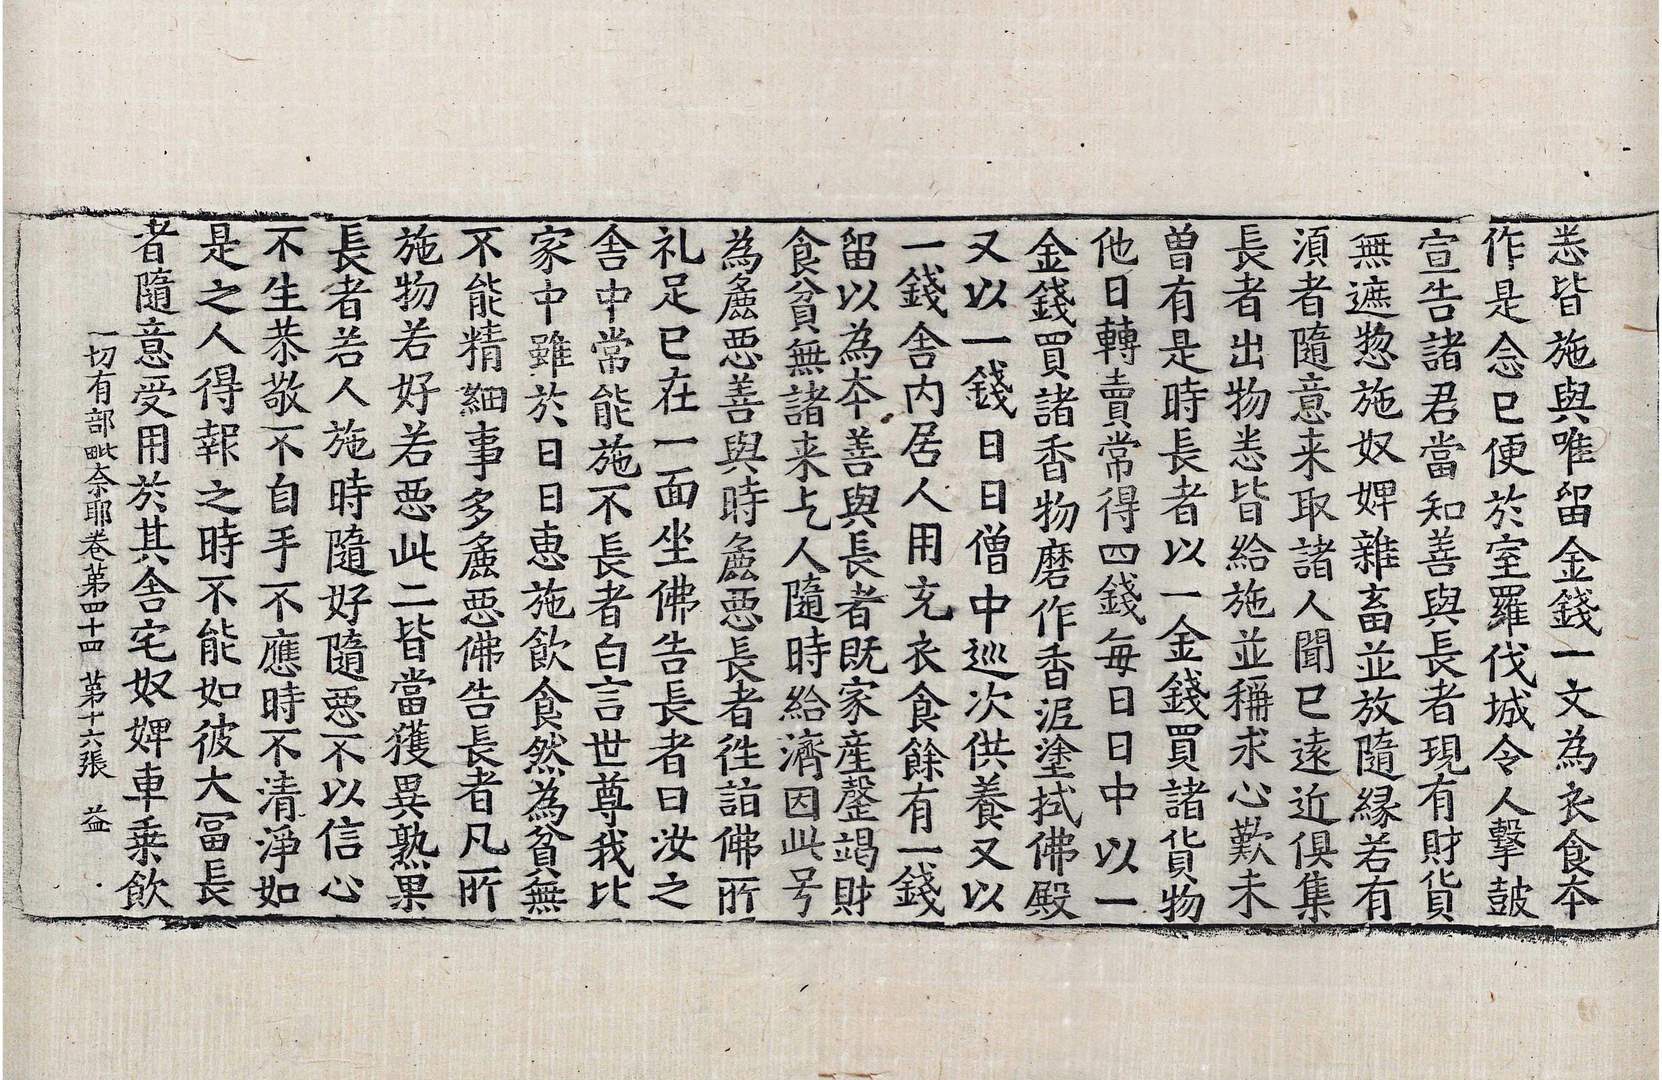 悉皆施與唯留金錢一文為衣食本
作是念已便於室羅伐城令人擊皷
宣告諸君當知善與長者現有財貨
無遮惣施奴婢雜畜並放隨縁若有
湏者隨意来取諸人聞已遠近俱集
長者出物悉皆給施並稱求心歎未
曽有是時長者以一金錢買諸貨物
他日轉賣常得四錢每日日中以一
金錢買諸香物磨作香泥塗拭佛殿
又以一錢日日僧中巡次供養又以
一錢舍内居人用充衣食餘有一錢
留以為本善與長者既家産罄竭財
食貧無諸来乞人隨時給濟因此号
為麁惡善與時麁惡長者往詣佛所
礼足已在一面坐佛告長者曰汝之
舍中常能施不長者白言世尊我比
家中雖於日日恵施飲食然為貧無
不能精細事多麁惡佛告長者凡所
施物若好若惡此二皆當獲異熟果
長者若人施時隨好隨惡不以信心
不生恭敬不自手不應時不清淨如
是之人得報之時不能如彼大冨長
者隨意受用於其舍宅奴婢車乗飲
一切有部毗奈耶卷第四十四 第十六張 益